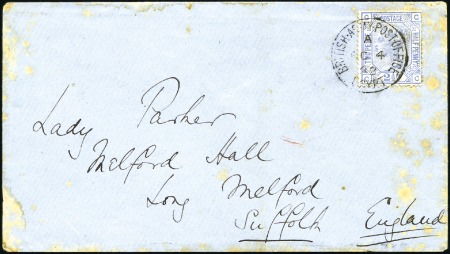 BRITISH·ARMY·POST OFFICE
A
4
82
EGYPT
POSTAGE
Lady Parker
Melford Hall
Long Melford
Suffolk England